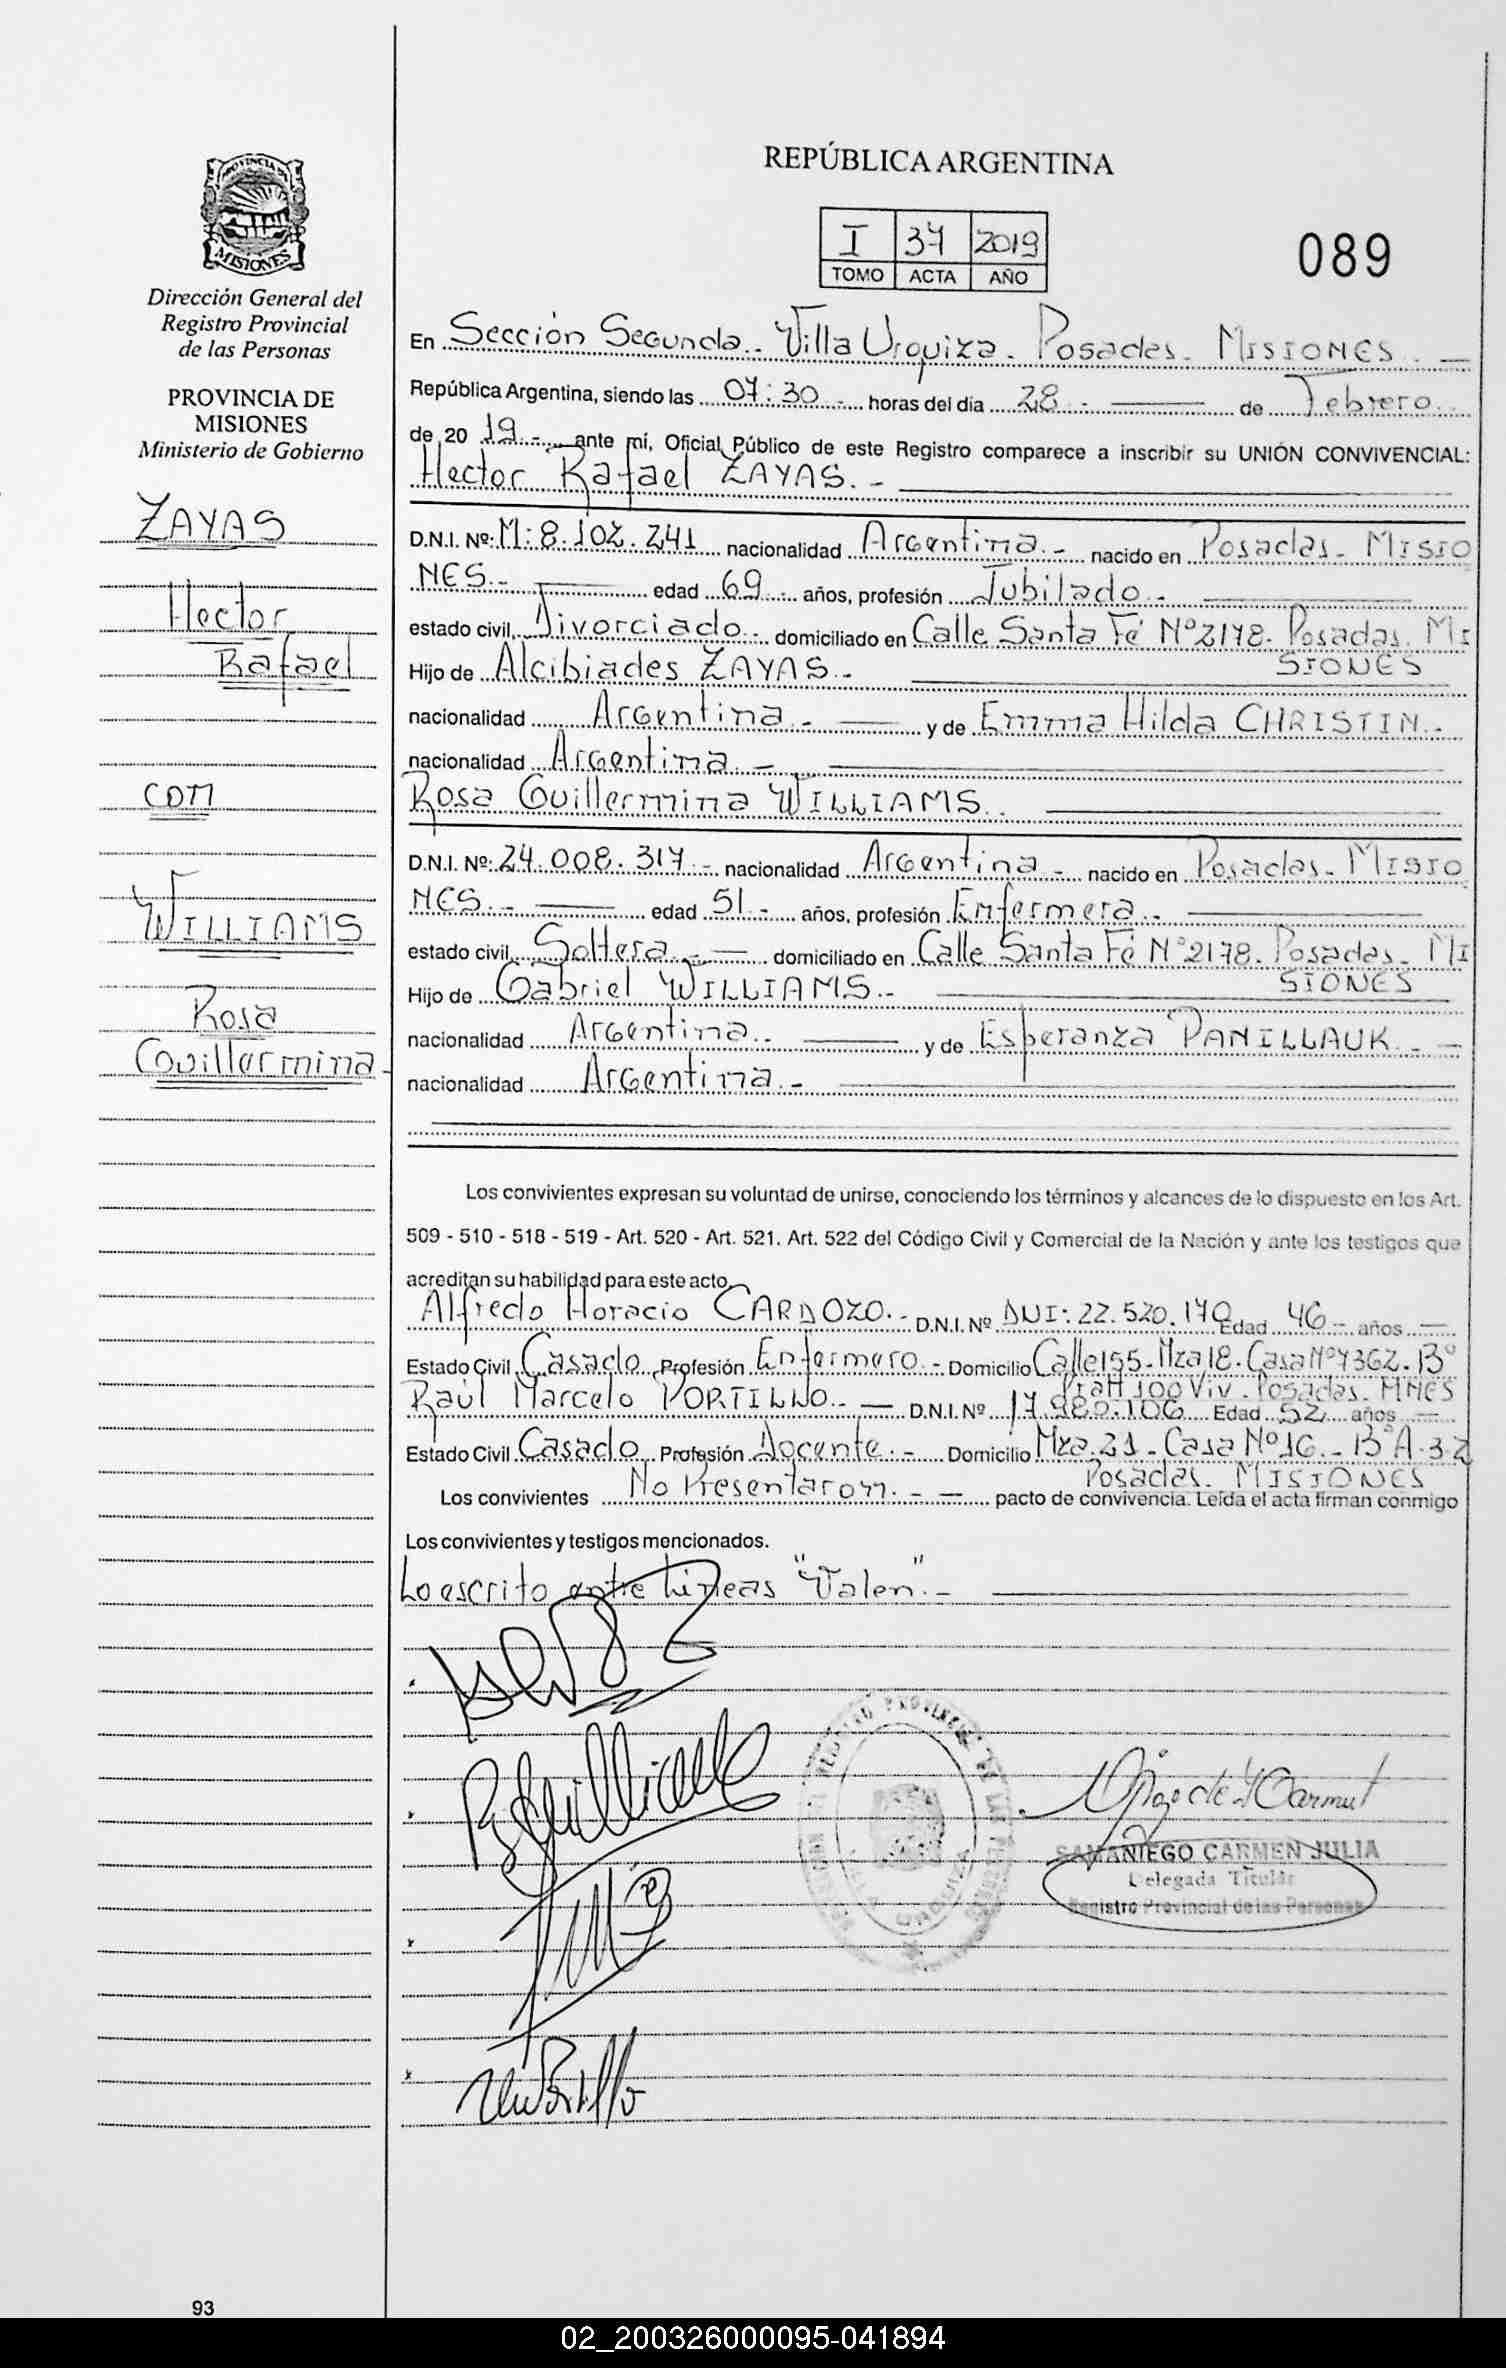 REPÚBLICA ARGENTINA
I 37 2019
TOMO ACTA AÑO
089
PROVINCIA DE
MISIONES
Dirección General del
Registro Provincial
de las Personas
PROVINCIA DE
MISIONES
Ministerio de Gobierno
ZAYAS
Hector
Rafael
CON
WILLIAMS
Rosa
Guillermina
En Sección Segunda.- Villa Urquiza. Posadas. MISIONES. —
República Argentina, siendo las 07:30.- horas del día 28.- — de Febrero.
de 20 19.- ante mí, Oficial Público de este Registro comparece a inscribir su UNIÓN CONVIVENCIAL:
Hector Rafael ZAYAS.-
D.N.I. Nº: M: 8.102.241 nacionalidad Argentina.- nacido en Posadas.- MISIO
NES.- edad 69.- años, profesión Jubilado.-
estado civil Divorciado.- domiciliado en Calle Santa Fé Nº 2178. Posadas. MI
SIONES
Hijo de Alcibiades ZAYAS.-
nacionalidad Argentina.- y de Emma Hilda CHRISTIN.-
nacionalidad Argentina.-
Rosa Guillermina WILLIAMS.
D.N.I. Nº: 24.008.317.- nacionalidad Argentina.- nacido en Posadas.- MISIO
NES.- edad 51.- años, profesión Enfermera.-
estado civil Soltera.- domiciliado en Calle Santa Fé Nº 2178. Posadas.- MI
SIONES
Hijo de Gabriel WILLIAMS.-
nacionalidad Argentina.- y de Esperanza PANILLAUK.- —
nacionalidad Argentina.-
Los convivientes expresan su voluntad de unirse, conociendo los términos y alcances de lo dispuesto en los Art.
509 - 510 - 518 - 519 - Art. 520 - Art. 521. Art. 522 del Código Civil y Comercial de la Nación y ante los testigos que
acreditan su habilidad para este acto.
Alfredo Horacio CARDOZO.- D.N.I. Nº DNI: 22.520.170 Edad 46.- años —
Estado Civil Casado Profesión Enfermero.- Domicilio Calle 155. Mza 18. Casa Nº 7362. Bº
100 Viv. Posadas. MNES
Raúl Marcelo PORTILLO.- — D.N.I. Nº 17.980.106 Edad 52 años —
Estado Civil Casado Profesión Docente.- Domicilio Mza. 21 - Casa Nº 16.- Bº A-3-2
Posadas. MISIONES
Los convivientes No Presentaron.- — pacto de convivencia. Leída el acta firman conmigo
Los convivientes y testigos mencionados.
Lo escrito entre Líneas "Valen".-
SAMANIEGO CARMEN JULIA
Delegada Titular
Registro Provincial de las Personas
93
02_200326000095-041894